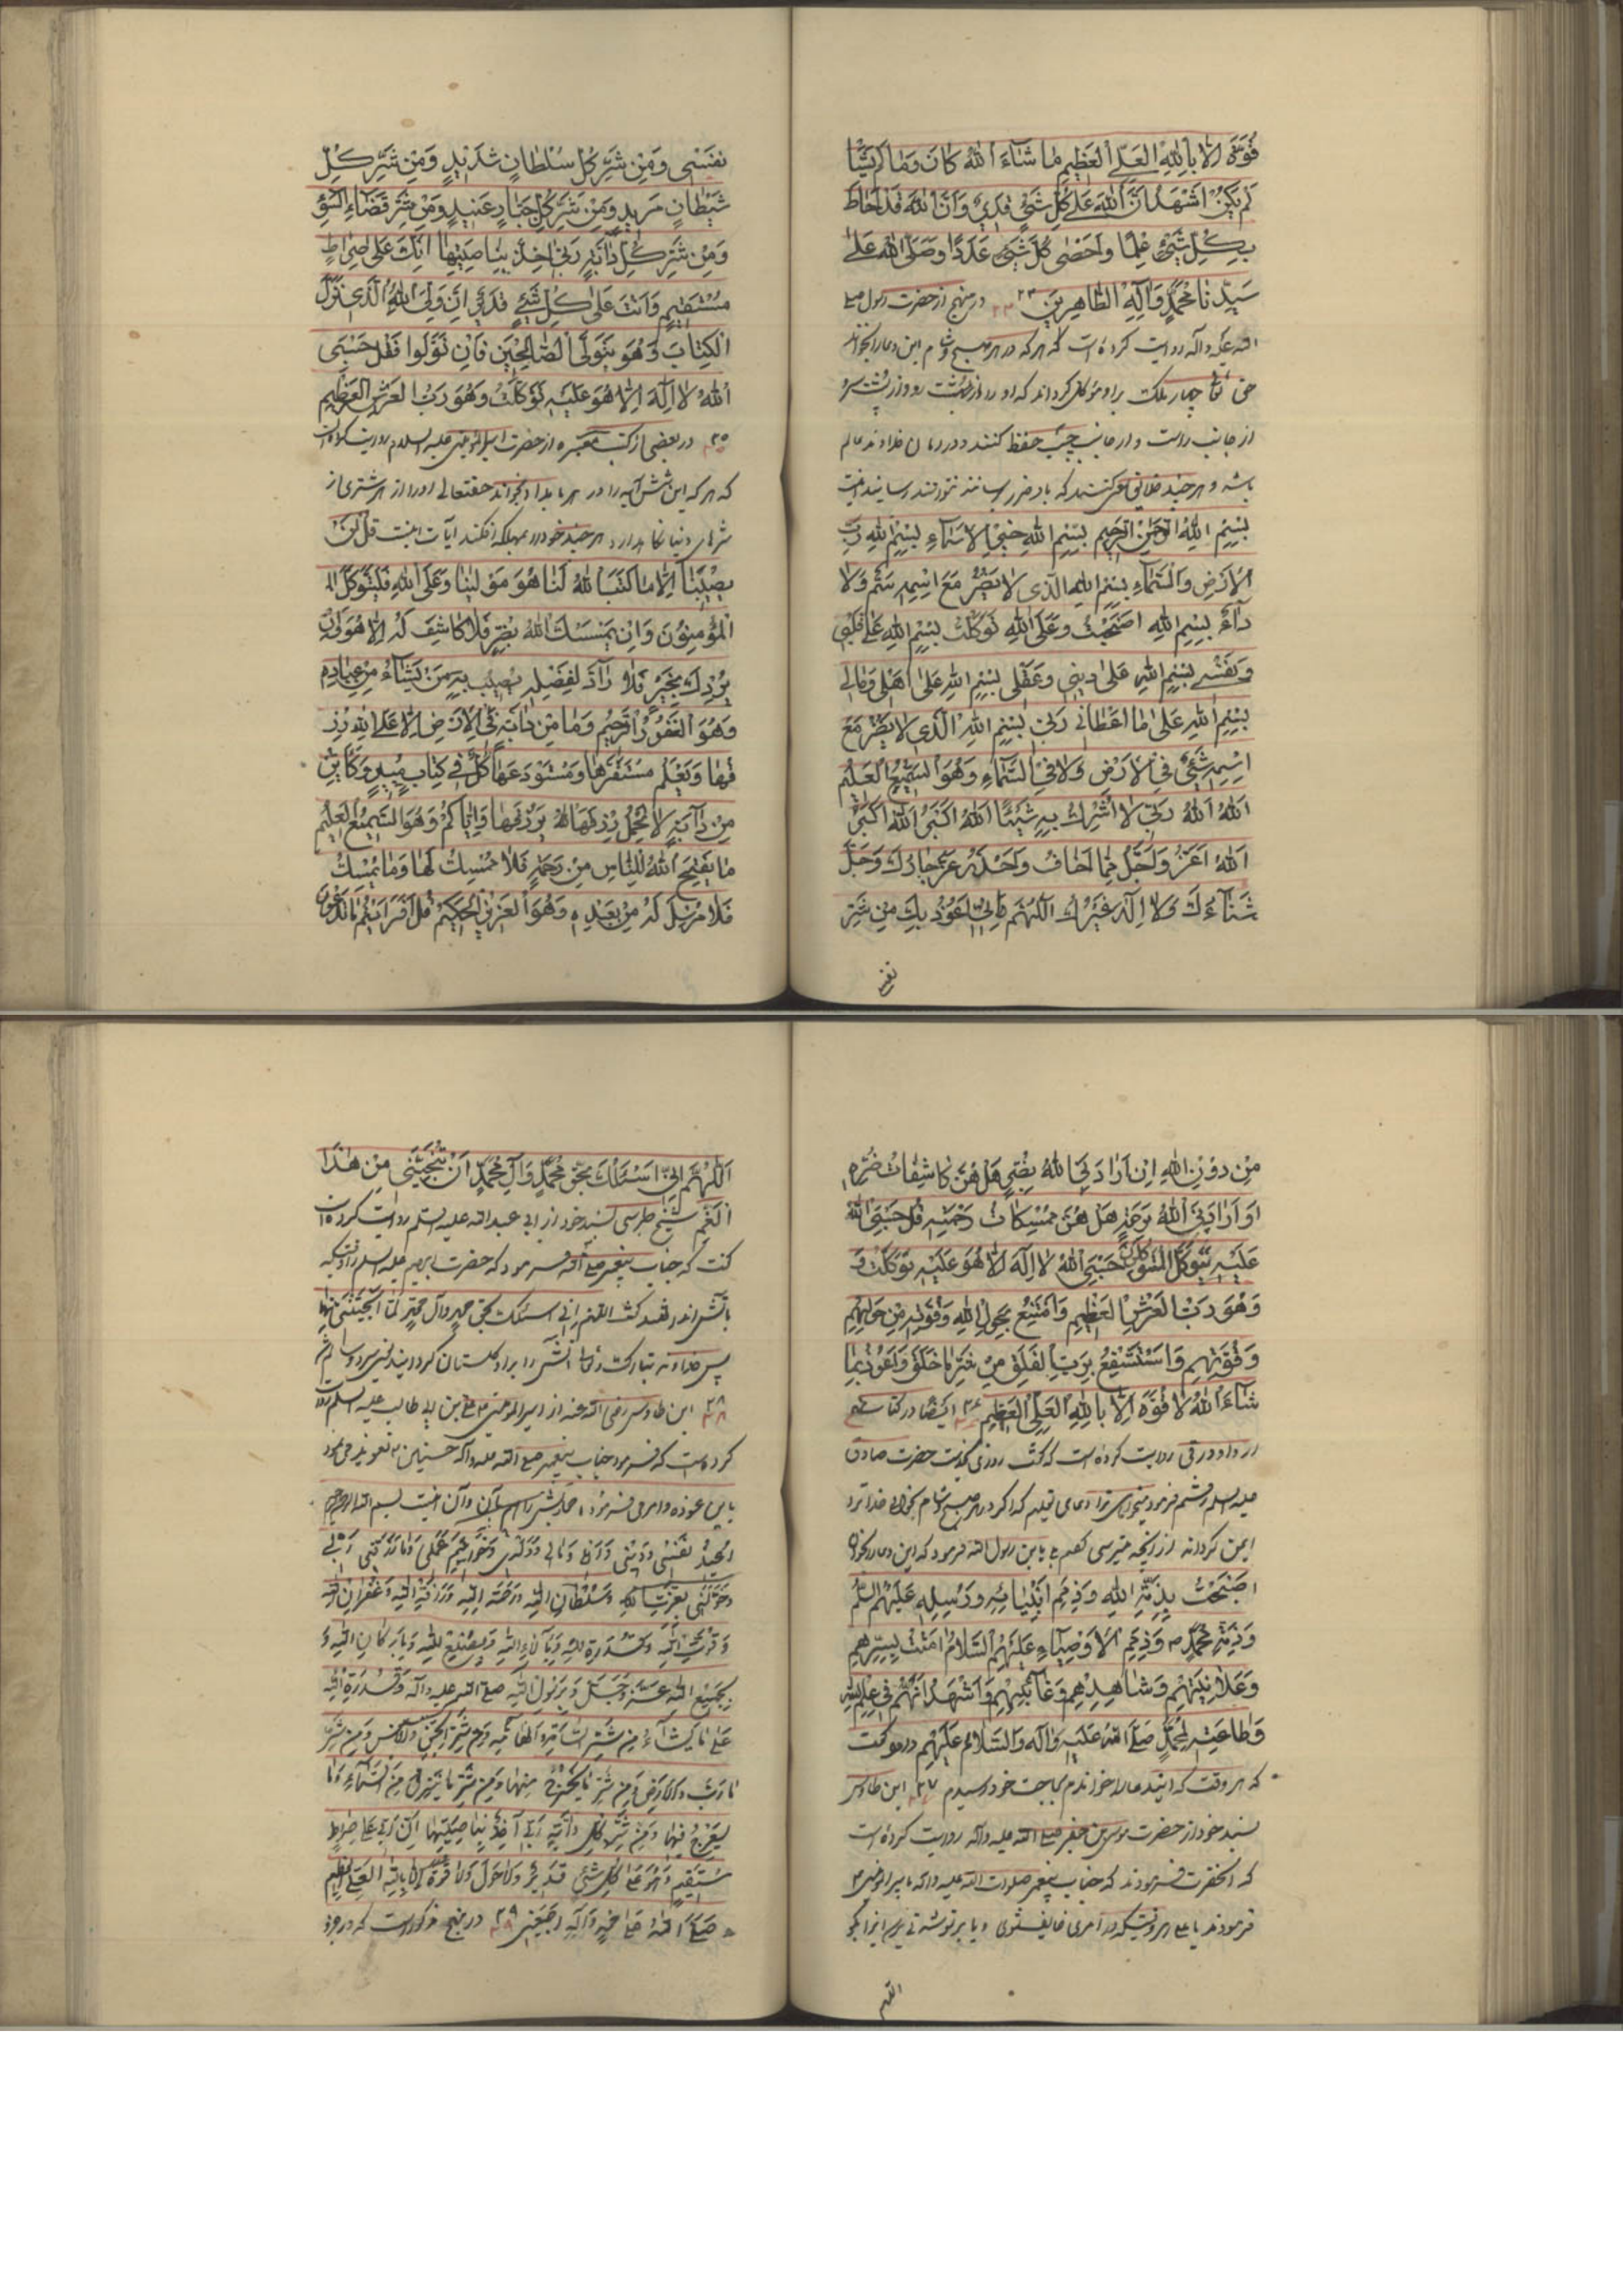 قُوَّةَ اِلَّا بِاللهِ الْعَلِيِّ الْعَظِيمِ مَا شَاءَ اللهُ كَانَ وَمَا لَمْ يَشَأْ
لَمْ يَكُنْ اَشْهَدُ اَنَّ اللهَ عَلَى كُلِّ شَيْءٍ قَدِيرٌ وَاَنَّ اللهَ قَدْ اَحَاطَ
بِكُلِّ شَيْءٍ عِلْمًا وَاَحْصَى كُلَّ شَيْءٍ عَدَدًا وَصَلَّى اللهُ عَلَى
سَيِّدِنَا مُحَمَّدٍ وَآلِهِ الطَّاهِرِينَ ۲۴ در منهج از حضرت رسول صلی
الله علیه وآله روایت کرده است که هر که در هر صبح و شام این دعا را بخواند
حق تعالی چهار ملک بر او موکل گرداند که او را از پیش رو و از پشت سر
از جانب راست و از جانب چپ حفظ کنند و در امان خداوند عالم
باشد و هر چند خلایق سعی کنند که باو ضرر رسانند نتوانند رسانید اینست
بِسْمِ اللهِ الرَّحْمٰنِ الرَّحِيمِ بِسْمِ اللهِ خَيْرِ الْاَسْمَاءِ بِسْمِ اللهِ رَبِّ
الْاَرْضِ وَالسَّمَاءِ بِسْمِ اللهِ الَّذِي لَا يَضُرُّ مَعَ اسْمِهِ سَمٌّ وَلَا
دَاءٌ بِسْمِ اللهِ اَصْبَحْتُ وَعَلَى اللهِ تَوَكَّلْتُ بِسْمِ اللهِ عَلَى قَلْبِي
وَنَفْسِي بِسْمِ اللهِ عَلَى دِينِي وَعَقْلِي بِسْمِ اللهِ عَلَى اَهْلِي وَمَالِي
بِسْمِ اللهِ عَلَى مَا اَعْطَانِي رَبِّي بِسْمِ اللهِ الَّذِي لَا يَضُرُّ مَعَ
اسْمِهِ شَيْءٌ فِي الْاَرْضِ وَلَا فِي السَّمَاءِ وَهُوَ السَّمِيعُ الْعَلِيمُ
اَللهُ اَللهُ رَبِّي لَا اُشْرِكُ بِهِ شَيْئًا اَللهُ اَكْبَرُ اَللهُ اَكْبَرُ
اَللهُ اَعَزُّ وَاَجَلُّ مِمَّا اَخَافُ وَاَحْذَرُ عَزَّ جَارُكَ وَجَلَّ
ثَنَاءُكَ وَلَا اِلٰهَ غَيْرُكَ اَللّٰهُمَّ اِنِّي اَعُوذُ بِكَ مِنْ شَرِّ
نفسی
نَفْسِي وَمِنْ شَرِّ كُلِّ سُلْطَانٍ شَدِيدٍ وَمِنْ شَرِّ كُلِّ
شَيْطَانٍ مَرِيدٍ وَمِنْ شَرِّ كُلِّ جَبَّارٍ عَنِيدٍ وَمِنْ شَرِّ قَضَاءِ السُّوءِ
وَمِنْ شَرِّ كُلِّ دَابَّةٍ رَبِّي آخِذٌ بِنَاصِيَتِهَا اِنَّكَ عَلَى صِرَاطٍ
مُسْتَقِيمٍ وَاَنْتَ عَلَى كُلِّ شَيْءٍ قَدِيرٌ اِنَّ وَلِيِّيَ اللهُ الَّذِي نَزَّلَ
الْكِتَابَ وَهُوَ يَتَوَلَّى الصَّالِحِينَ فَاِنْ تَوَلَّوْا فَقُلْ حَسْبِيَ
اللهُ لَا اِلٰهَ اِلَّا هُوَ عَلَيْهِ تَوَكَّلْتُ وَهُوَ رَبُّ الْعَرْشِ الْعَظِيمِ
۲۵ در بعضی از کتب معتبره از حضرت امیرالمؤمنین علیه السلام روایت کرده اند
که هر که این شش آیه را در هر بامداد بخواند حقتعالی او را از هر شری از
شرهای دنیا نگاه دارد هر چند خود را در مهلکه افکند آیات اینست قُلْ لَنْ
يُصِيبَنَا اِلَّا مَا كَتَبَ اللهُ لَنَا هُوَ مَوْلٰينَا وَعَلَى اللهِ فَلْيَتَوَكَّلِ
الْمُؤْمِنُونَ وَاِنْ يَمْسَسْكَ اللهُ بِضُرٍّ فَلَا كَاشِفَ لَهُ اِلَّا هُوَ وَاِنْ
يُرِدْكَ بِخَيْرٍ فَلَا رَادَّ لِفَضْلِهِ يُصِيبُ بِهِ مَنْ يَشَاءُ مِنْ عِبَادِهِ
وَهُوَ الْغَفُورُ الرَّحِيمُ وَمَا مِنْ دَابَّةٍ فِي الْاَرْضِ اِلَّا عَلَى اللهِ رِزْ
قُهَا وَيَعْلَمُ مُسْتَقَرَّهَا وَمُسْتَوْدَعَهَا كُلٌّ فِي كِتَابٍ مُبِينٍ وَكَاَيِّنْ
مِنْ دَابَّةٍ لَا تَحْمِلُ رِزْقَهَا اللهُ يَرْزُقُهَا وَاِيَّاكُمْ وَهُوَ السَّمِيعُ الْعَلِيمُ
مَا يَفْتَحِ اللهُ لِلنَّاسِ مِنْ رَحْمَةٍ فَلَا مُمْسِكَ لَهَا وَمَا يُمْسِكْ
فَلَا مُرْسِلَ لَهُ مِنْ بَعْدِهِ وَهُوَ الْعَزِيزُ الْحَكِيمُ قُلْ اَفَرَاَيْتُمْ مَا تَدْعُونَ
مِنْ دُونِ اللهِ اِنْ اَرَادَنِيَ اللهُ بِضُرٍّ هَلْ هُنَّ كَاشِفَاتُ ضُرِّهِ
اَوْ اَرَادَنِيَ اللهُ بِرَحْمَةٍ هَلْ هُنَّ مُمْسِكَاتُ رَحْمَتِهِ قُلْ حَسْبِيَ اللهُ
عَلَيْهِ يَتَوَكَّلُ الْمُتَوَكِّلُونَ حَسْبِيَ اللهُ لَا اِلٰهَ اِلَّا هُوَ عَلَيْهِ تَوَكَّلْتُ وَ
وَهُوَ رَبُّ الْعَرْشِ الْعَظِيمِ وَاَمْتَنِعُ بِحَوْلِ اللهِ وَقُوَّتِهِ مِنْ حَوْلِهِمْ
وَقُوَّتِهِمْ وَاَسْتَشْفِعُ بِرَبِّ الْفَلَقِ مِنْ شَرِّ مَا خَلَقَ وَاَعُوذُ بِمَا
شَاءَ اللهُ لَا قُوَّةَ اِلَّا بِاللهِ الْعَلِيِّ الْعَظِيمِ ۲۶ ایضا در کتاب
از داود رقی روایت کرده است که گفت روزی بخدمت حضرت صادق
علیه السلام رفتم فرمود میخواهی ترا دعایی تعلیم که اگر در هر صبح و شام بخوانی خدا ترا
ایمن گرداند از آنچه میترسی گفتم بلی یابن رسول الله فرمود که این دعا را بخوان
اَصْبَحْتُ بِذِمَّةِ اللهِ وَذِمَمِ اَنْبِيَائِهِ وَرُسُلِهِ عَلَيْهِمُ السَّلَامُ
وَذِمَّةِ مُحَمَّدٍ ص وَذِمَمِ الْاَوْصِيَاءِ عَلَيْهِمُ السَّلَامُ آمَنْتُ بِسِرِّهِمْ
وَعَلَانِيَتِهِمْ وَشَاهِدِهِمْ وَغَائِبِهِمْ وَاَشْهَدُ اَنَّهُمْ فِي عِلْمِ اللهِ
وَطَاعَتِهِ لِمُحَمَّدٍ صَلَّى اللهُ عَلَيْهِ وَآلِهِ وَالسَّلَامُ عَلَيْهِمْ داود گفت
که هر وقت که این دعا را خواندم بحاجت خود رسیدم ۲۷ ابن طاوس
بسند خود از حضرت موسی بن جعفر صلی الله علیه وآله روایت کرده است
که آنحضرت فرمودند که جناب پیغمبر صلوات الله علیه وآله بامیرالمؤمنین
فرمودند یا علی هر وقتیکه در امری خایف شوی و یا بر تو شدتی برسد این را بگو
اللهم
اَللّٰهُمَّ اِنِّي اَسْئَلُكَ بِحَقِّ مُحَمَّدٍ وَآلِ مُحَمَّدٍ اَنْ تُنَجِّيَنِي مِنْ هٰذَا
الْغَمِّ شیخ طبرسی بسند خود از ابی عبدالله علیه السلم روایت کرده است
گفت که جناب پیغمبر صلی الله فرمود که حضرت ابراهیم علیه السلم را وقتیکه
بآتش انداختند گفت اللهم انی اسئلک بحق محمد وآل محمد لما انجیتنی منها
پس خداوند تبارک وتعالی آتش را بر او گلستان گردانید
۲۸ ابن طاوس رضی الله عنه از امیرالمؤمنین علی بن ابی طالب علیه السلم روایت
کرده است که فرمود جناب پیغمبر صلی الله علیه وآله حسنین را تعویذ می نمود
باین عوذه وامر می فرمود اصحابش را باین وآن اینست بسم الله الرحمن الرحیم
اُعِيذُ نَفْسِي وَدِينِي وَاَهْلِي وَمَالِي وَوَلَدِي وَخَوَاتِيمَ عَمَلِي وَمَا رَزَقَنِي رَبِّي
وَخَوَّلَنِي بِعِزَّةِ اللهِ وَسُلْطَانِ اللهِ وَرَحْمَةِ اللهِ وَرَأْفَةِ اللهِ وَغُفْرَانِ اللهِ
وَقُوَّةِ اللهِ وَقُدْرَةِ اللهِ وَبِآلَاءِ اللهِ وَبِصُنْعِ اللهِ وَبِاَرْكَانِ اللهِ وَ
بِجَمْعِ اللهِ عَزَّ وَجَلَّ وَبِرَسُولِ اللهِ صلی الله علیه وآله وَقُدْرَةِ اللهِ
عَلَى مَا يَشَاءُ مِنْ شَرِّ السَّامَّةِ وَالْهَامَّةِ وَمِنْ شَرِّ الْجِنِّ وَالْاِنْسِ وَمِنْ شَرِّ
مَا دَبَّ فِي الْاَرْضِ وَمِنْ شَرِّ مَا يَخْرُجُ مِنْهَا وَمِنْ شَرِّ مَا يَنْزِلُ مِنَ السَّمَاءِ وَمَا
يَعْرُجُ فِيهَا وَمِنْ شَرِّ كُلِّ دَابَّةٍ رَبِّي آخِذٌ بِنَاصِيَتِهَا اِنَّ رَبِّي عَلَى صِرَاطٍ
مُسْتَقِيمٍ وَهُوَ عَلَى كُلِّ شَيْءٍ قَدِيرٌ وَلَا حَوْلَ وَلَا قُوَّةَ اِلَّا بِاللهِ الْعَلِيِّ الْعَظِيمِ
وَصَلَّى اللهُ عَلَى مُحَمَّدٍ وَآلِهِ اَجْمَعِينَ ۲۹ در منهج مذکور است که در